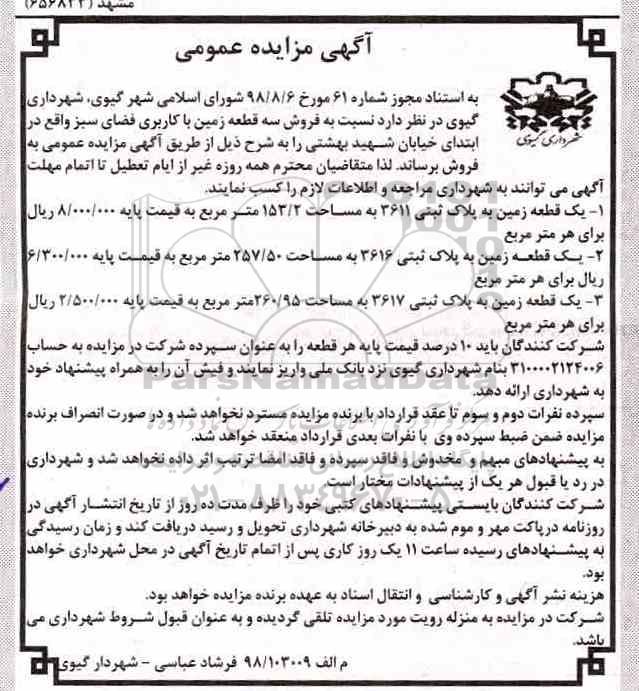 مشهد (۶۵۶۸۲۲)
آگهی مزایده عمومی
شهرداری گیوی
به استناد مجوز شماره ۶۱ مورخ ۹۸/۸/۶ شورای اسلامی شهر گیوی، شهرداری
گیوی در نظر دارد نسبت به فروش سه قطعه زمین با کاربری فضای سبز واقع در
ابتدای خیابان شهید بهشتی را به شرح ذیل از طریق آگهی مزایده عمومی به
فروش برساند. لذا متقاضیان محترم همه روزه غیر از ایام تعطیل تا اتمام مهلت
آگهی می توانند به شهرداری مراجعه و اطلاعات لازم را کسب نمایند.
۱- یک قطعه زمین به پلاک ثبتی ۳۶۱۱ به مساحت ۱۵۳/۲ متر مربع به قیمت پایه ۸/۰۰۰/۰۰۰ ریال
برای هر متر مربع
۲- یک قطعه زمین به پلاک ثبتی ۳۶۱۶ به مساحت ۲۵۷/۵۰ متر مربع به قیمت پایه ۶/۳۰۰/۰۰۰
ریال برای هر متر مربع
۳- یک قطعه زمین به پلاک ثبتی ۳۶۱۷ به مساحت ۲۶۰/۹۵متر مربع به قیمت پایه ۲/۵۰۰/۰۰۰ ریال
برای هر متر مربع
شرکت کنندگان باید ۱۰ درصد قیمت پایه هر قطعه را به عنوان سپرده شرکت در مزایده به حساب
۳۱۰۰۰۰۲۱۲۴۰۰۶ بنام شهرداری گیوی نزد بانک ملی واریز نمایند و فیش آن را به همراه پیشنهاد خود
به شهرداری ارائه دهد.
سپرده نفرات دوم و سوم تا عقد قرارداد با برنده مزایده مسترد نخواهد شد و در صورت انصراف برنده
مزایده ضمن ضبط سپرده وی با نفرات بعدی قرارداد منعقد خواهد شد.
به پیشنهادهای مبهم و مخدوش و فاقد سپرده و فاقد امضا ترتیب اثر داده نخواهد شد و شهرداری
در رد یا قبول هر یک از پیشنهادات مختار است.
شرکت کنندگان بایستی پیشنهادهای کتبی خود را ظرف مدت ده روز از تاریخ انتشار آگهی در
روزنامه درپاکت مهر و موم شده به دبیرخانه شهرداری تحویل و رسید دریافت کند و زمان رسیدگی
به پیشنهادهای رسیده ساعت ۱۱ یک روز کاری پس از اتمام تاریخ آگهی در محل شهرداری خواهد
بود.
هزینه نشر آگهی و کارشناسی و انتقال اسناد به عهده برنده مزایده خواهد بود.
شرکت در مزایده به منزله رویت مورد مزایده تلقی گردیده و به عنوان قبول شروط شهرداری می
باشد.
م الف ۹۸/۱۰۳۰۰۹ فرشاد عباسی - شهردار گیوی
ParsNamadData
۰۲۱-۸۸۳۴۹۶۷۰-۵